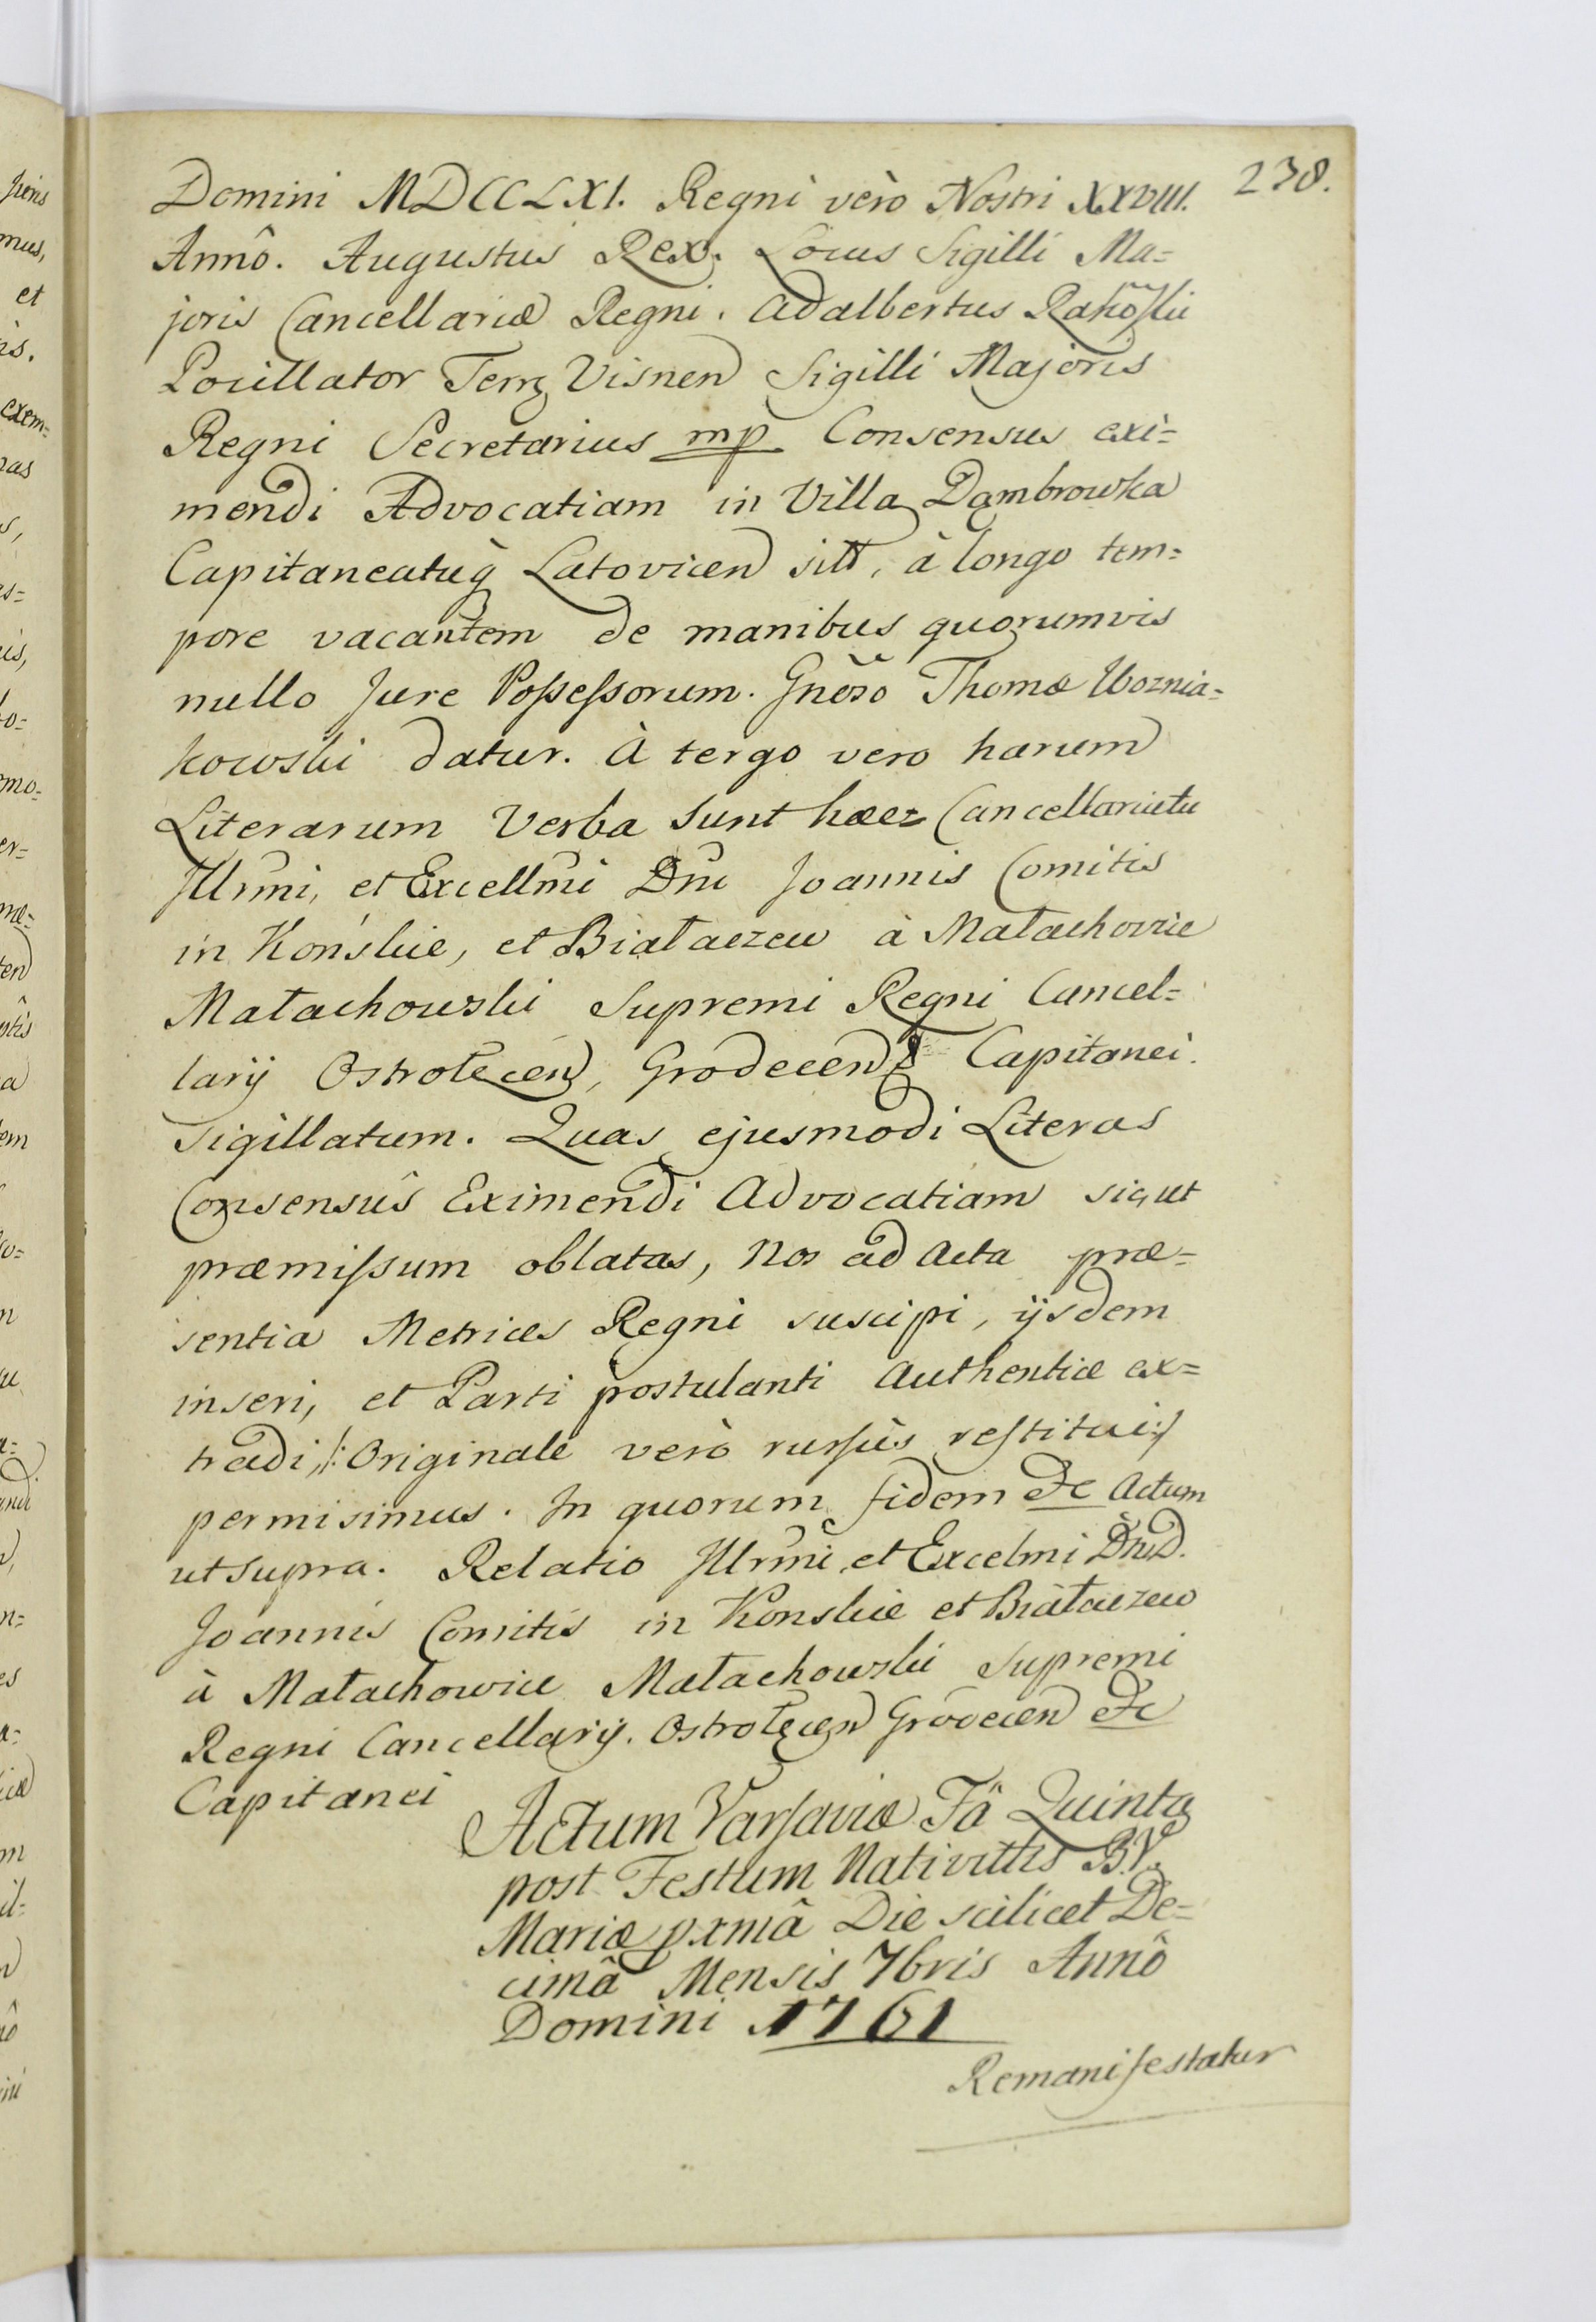 238.
Domini MDCCLXI. Regni verò Nostri XXVIII.
Annô. Augustus Rex. Locus Sigilli Ma=
joris Cancellariæ Regni. Adalbertus
Pocillator Terrę Visnen Sigilli Majoris
Regni Secretarius mp Consensus exi=
mendi Advocatiam in Villa Dąmbrowka
Capitaneatuq̀ Latovicen sitt, à longo tem=
pore vacantem de manibus quorumvis
nullo Jure Possessorum. Gnõso Thomæ Woznia=
kowski datur. À tergo vero harum
Literarum Verba sunt hæc= Cancellariatu
Illrmi, et Excellmi Dni Joannis Comitis
in Końskie, et Białaczew à Małachowice
Małachowski Supremi Regni Cancel=
larij Ostrołęcen, Grodecen Capitanei.
Sigillatum. Quas ejusmodi Literas
Consensûs Eximendi Advocatiam sicut
præmissum oblatas, Nos ad Acta præ=
sentia Metrices Regni suscipi, ijsdem
inseri, et Parti postulanti Authenticè ex=
tradi, /: Originale verò rursùs restitui :/
permisimus. In quorum fidem &c Actum
ut supra. Relatio Illrmi, et Excelmi DnD.
Joannis Comitis in Konskie et Białaczew
à Małachowice Małachowski Supremi
Regni Cancellarij. Ostrołęcen Grodecen &c
Capitanei
Actum Varsaviæ Fâ Quinta
post Festum Nativittis B.V.
Mariæ pxmâ Die scilicet De=
cimâ Mensis 7bris Annô
Domini 1761
Remanifestatur